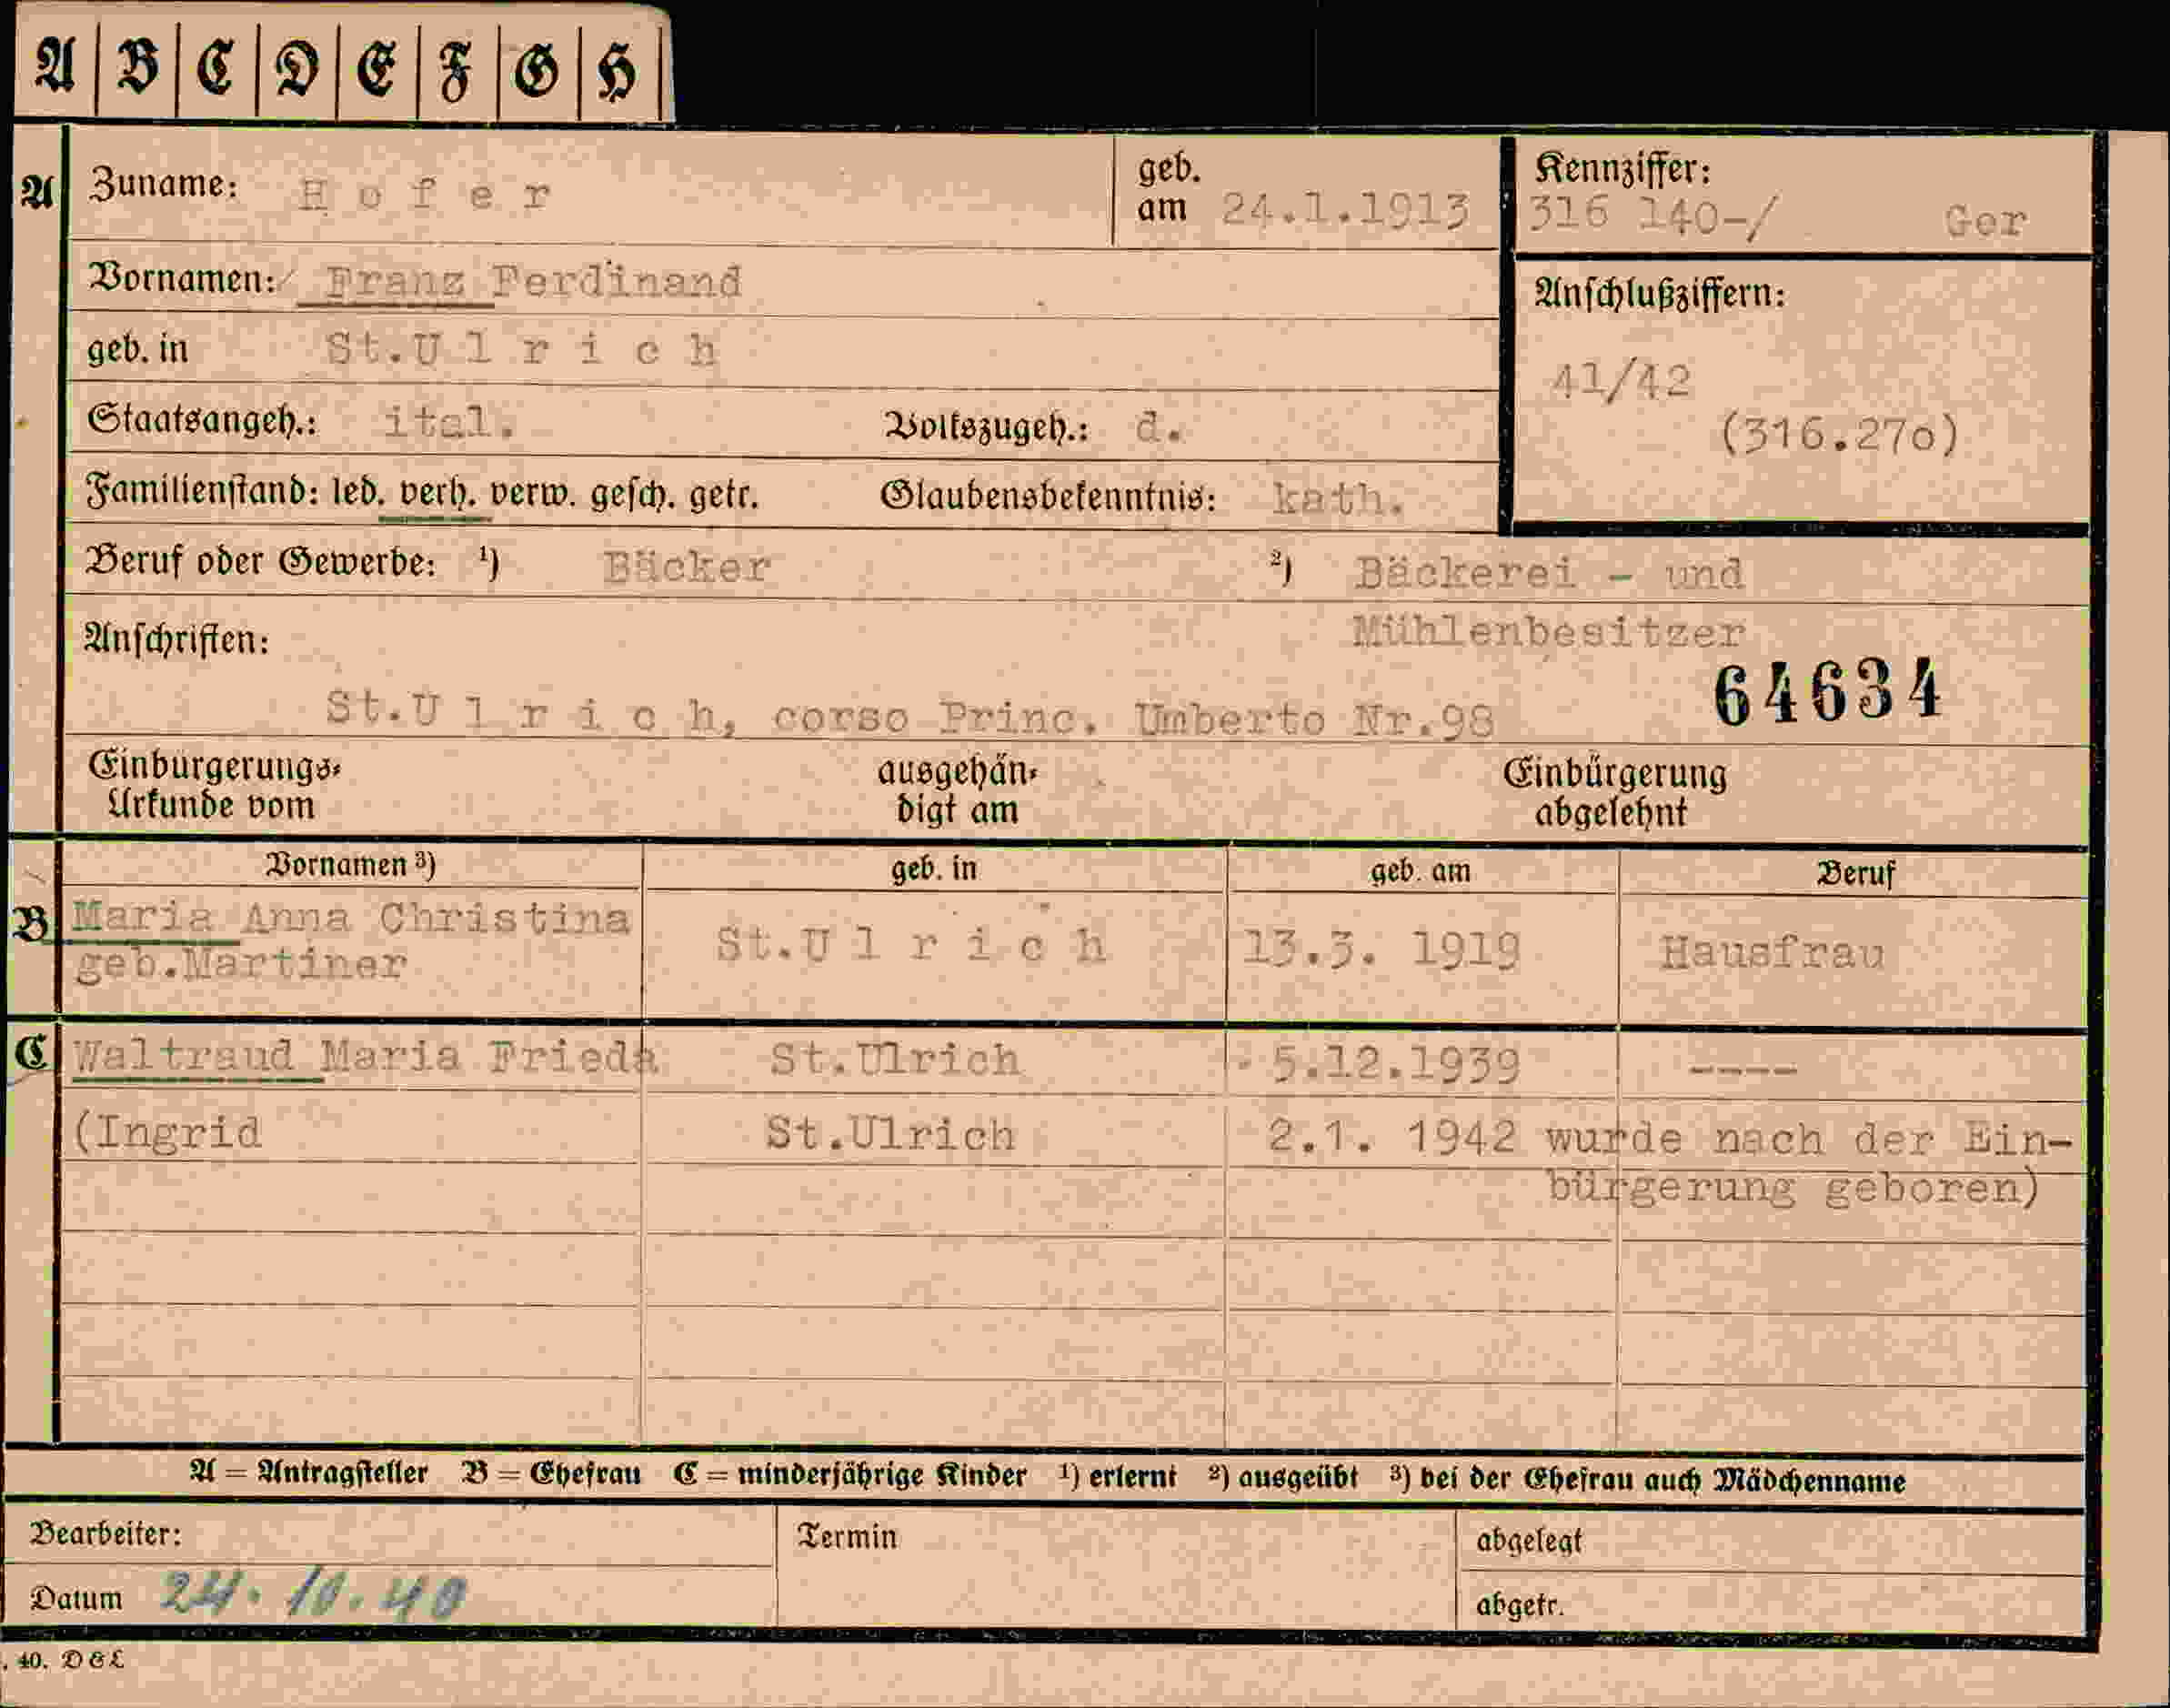 A | B | C | D | E | F | G | H
A Zuname: Hofer geb. am 24.1.1913 Kennziffer: 316 140-/ Gor
Vornamen: Franz Ferdinand Anschlußziffern:
geb. in St.Ulrich 41/42
Staatsangeh.: ital. Volkszugeh.: d. (316.270)
Familienstand: led. verh. verw. gesch. getr. Glaubensbekenntnis: kath.
Beruf oder Gewerbe: ¹) Bäcker ²) Bäckerei - und
Anschriften: Mühlenbesitzer
64634
St.Ulrich, corso Princ. Umberto Nr.98
Einbürgerungs- ausgehän- Einbürgerung
Urkunde vom digt am abgelehnt
Vornamen ³) geb. in geb. am Beruf
B Maria Anna Christina St.Ulrich 13.3. 1919 Hausfrau
geb.Martiner
C Waltraud Maria Frieda St.Ulrich 5.12.1939 ----
(Ingrid St.Ulrich 2.1. 1942 wurde nach der Ein-
bürgerung geboren)
A = Antragsteller B = Ehefrau C = minderjährige Kinder ¹) erlernt ²) ausgeübt ³) bei der Ehefrau auch Mädchenname
Bearbeiter: Termin abgelegt
Datum 24.10.40 abgetr.
. 40. D&L